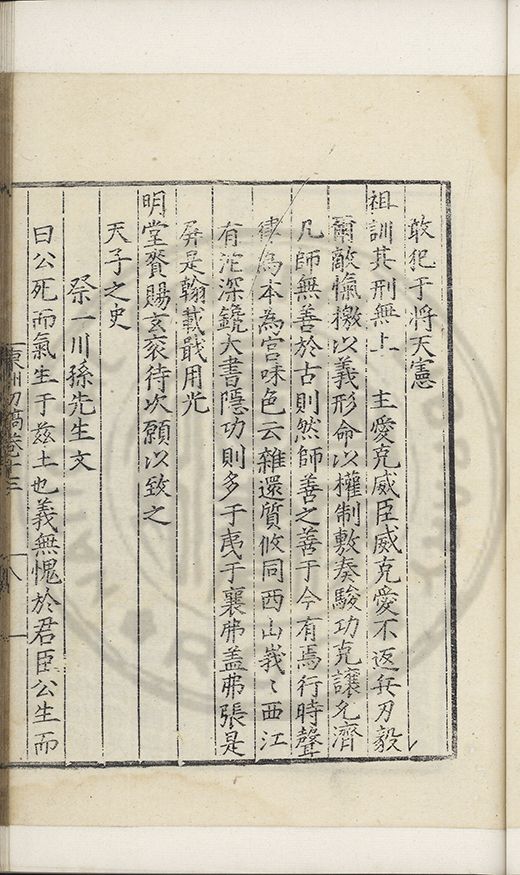 敢犯于将天憲
祖訓其刑無上　主愛克威臣威克愛不返兵刃毅
爾敵愾檄以義形命以權制敷奏駿功克讓允濟
凡師無善於古則然師善之善于今有焉行時聲
律為本為宫味色云雜還質攸同西山峩〻西江
有沱深鑱大書隱功則多于夷于襄弗盖弗張是
屏是翰載戢用光
明堂賚賜玄衮待次願以致之
天子之史
祭一川孫先生文
曰公死而氣生于兹土也義無愧於君臣公生而
東州初稿卷十三
八